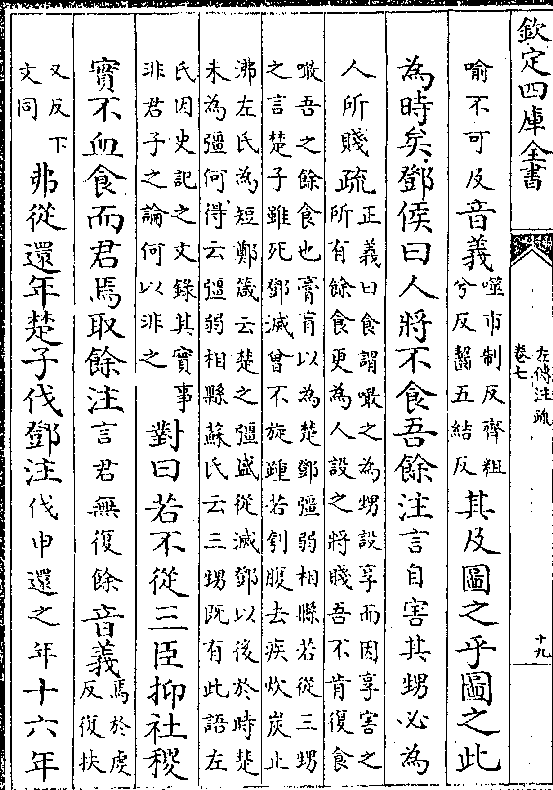 欽定四庫全書
左傳注疏
卷七
十九
喻不可及音義噬市制反齊粗
兮反齧五結反其及圖之乎圖之此
為時矣鄧侯曰人將不食吾餘注言自害其甥必為
人所賤疏正義曰食謂噉之為甥設享而因享害之
所有餘食更為人設之將賤吾不肯復食
噉吾之餘食也膏肓以為楚鄧彊弱相懸若從三甥
之言楚子雖死鄧滅曾不旋踵若刳腹去疾炊炭止
沸左氏為短鄭箴云楚之彊盛從滅鄧以後於時楚
未為彊何得云彊弱相縣蘇氏云三甥既有此語左
氏因史記之文錄其實事
非君子之論何以非之對曰若不從三臣抑社稷
實不血食而君焉取餘注言君無復餘音義焉於虔
反復扶
又反下
文同弗從還年楚子伐鄧注伐申還之年十六年